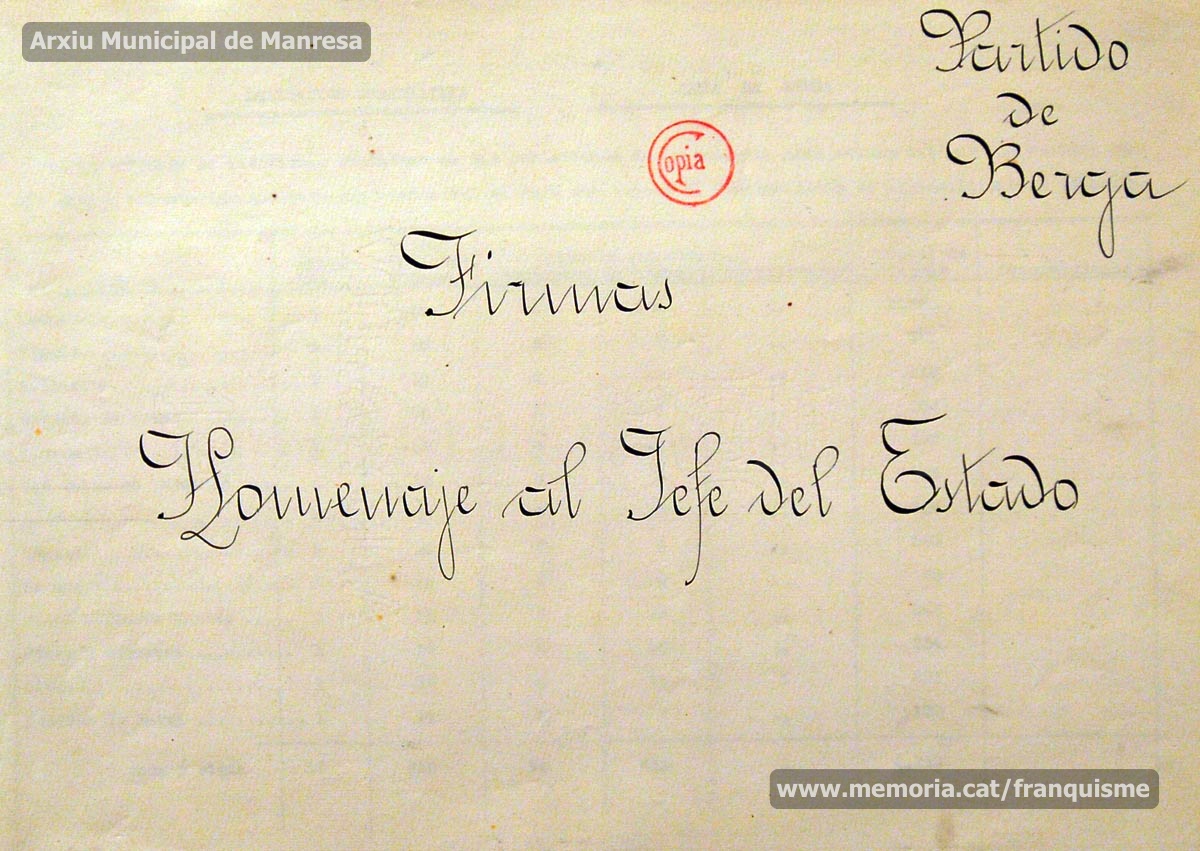 Arxiu Municipal de Manresa
Partido
de
Berga
Copia
Firmas
Homenaje al Jefe del Estado
www.memoria.cat/franquisme